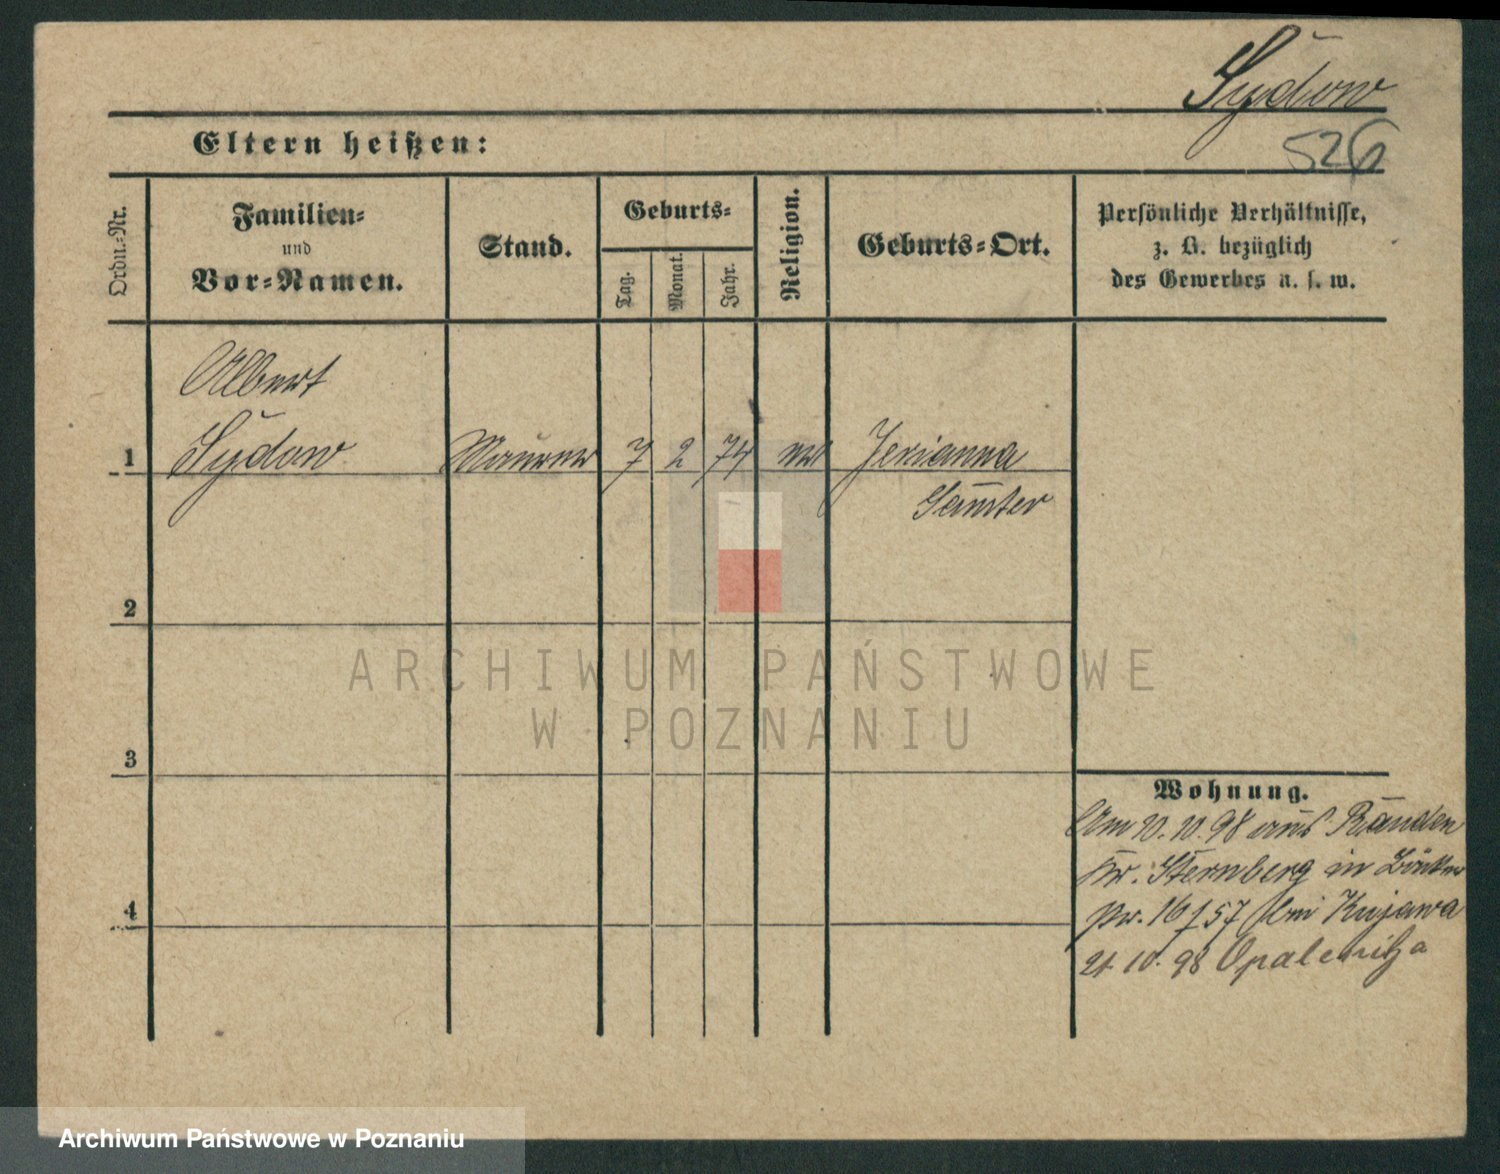 Sydow
526
Eltern heißen:
Ordn.-Nr.
Familien-
und
Vor-Namen.
Stand.
Geburts-
Tag.
Monat.
Jahr.
Religion.
Geburts-Ort.
Persönliche Verhältnisse,
z. B. bezüglich
des Gewerbes u. s. w.
Albert
1 Sydow Maurer 7 2 74 ev Jerianna
Samter
2
3
4
Wohnung.
Am 20.10.98 aus Rauden
Kr. Sternberg in
pr. 16/57 bei Kujawa
21.10.98 Opalenitza
ARCHIWUM PAŃSTWOWE
W POZNANIU
Archiwum Państwowe w Poznaniu